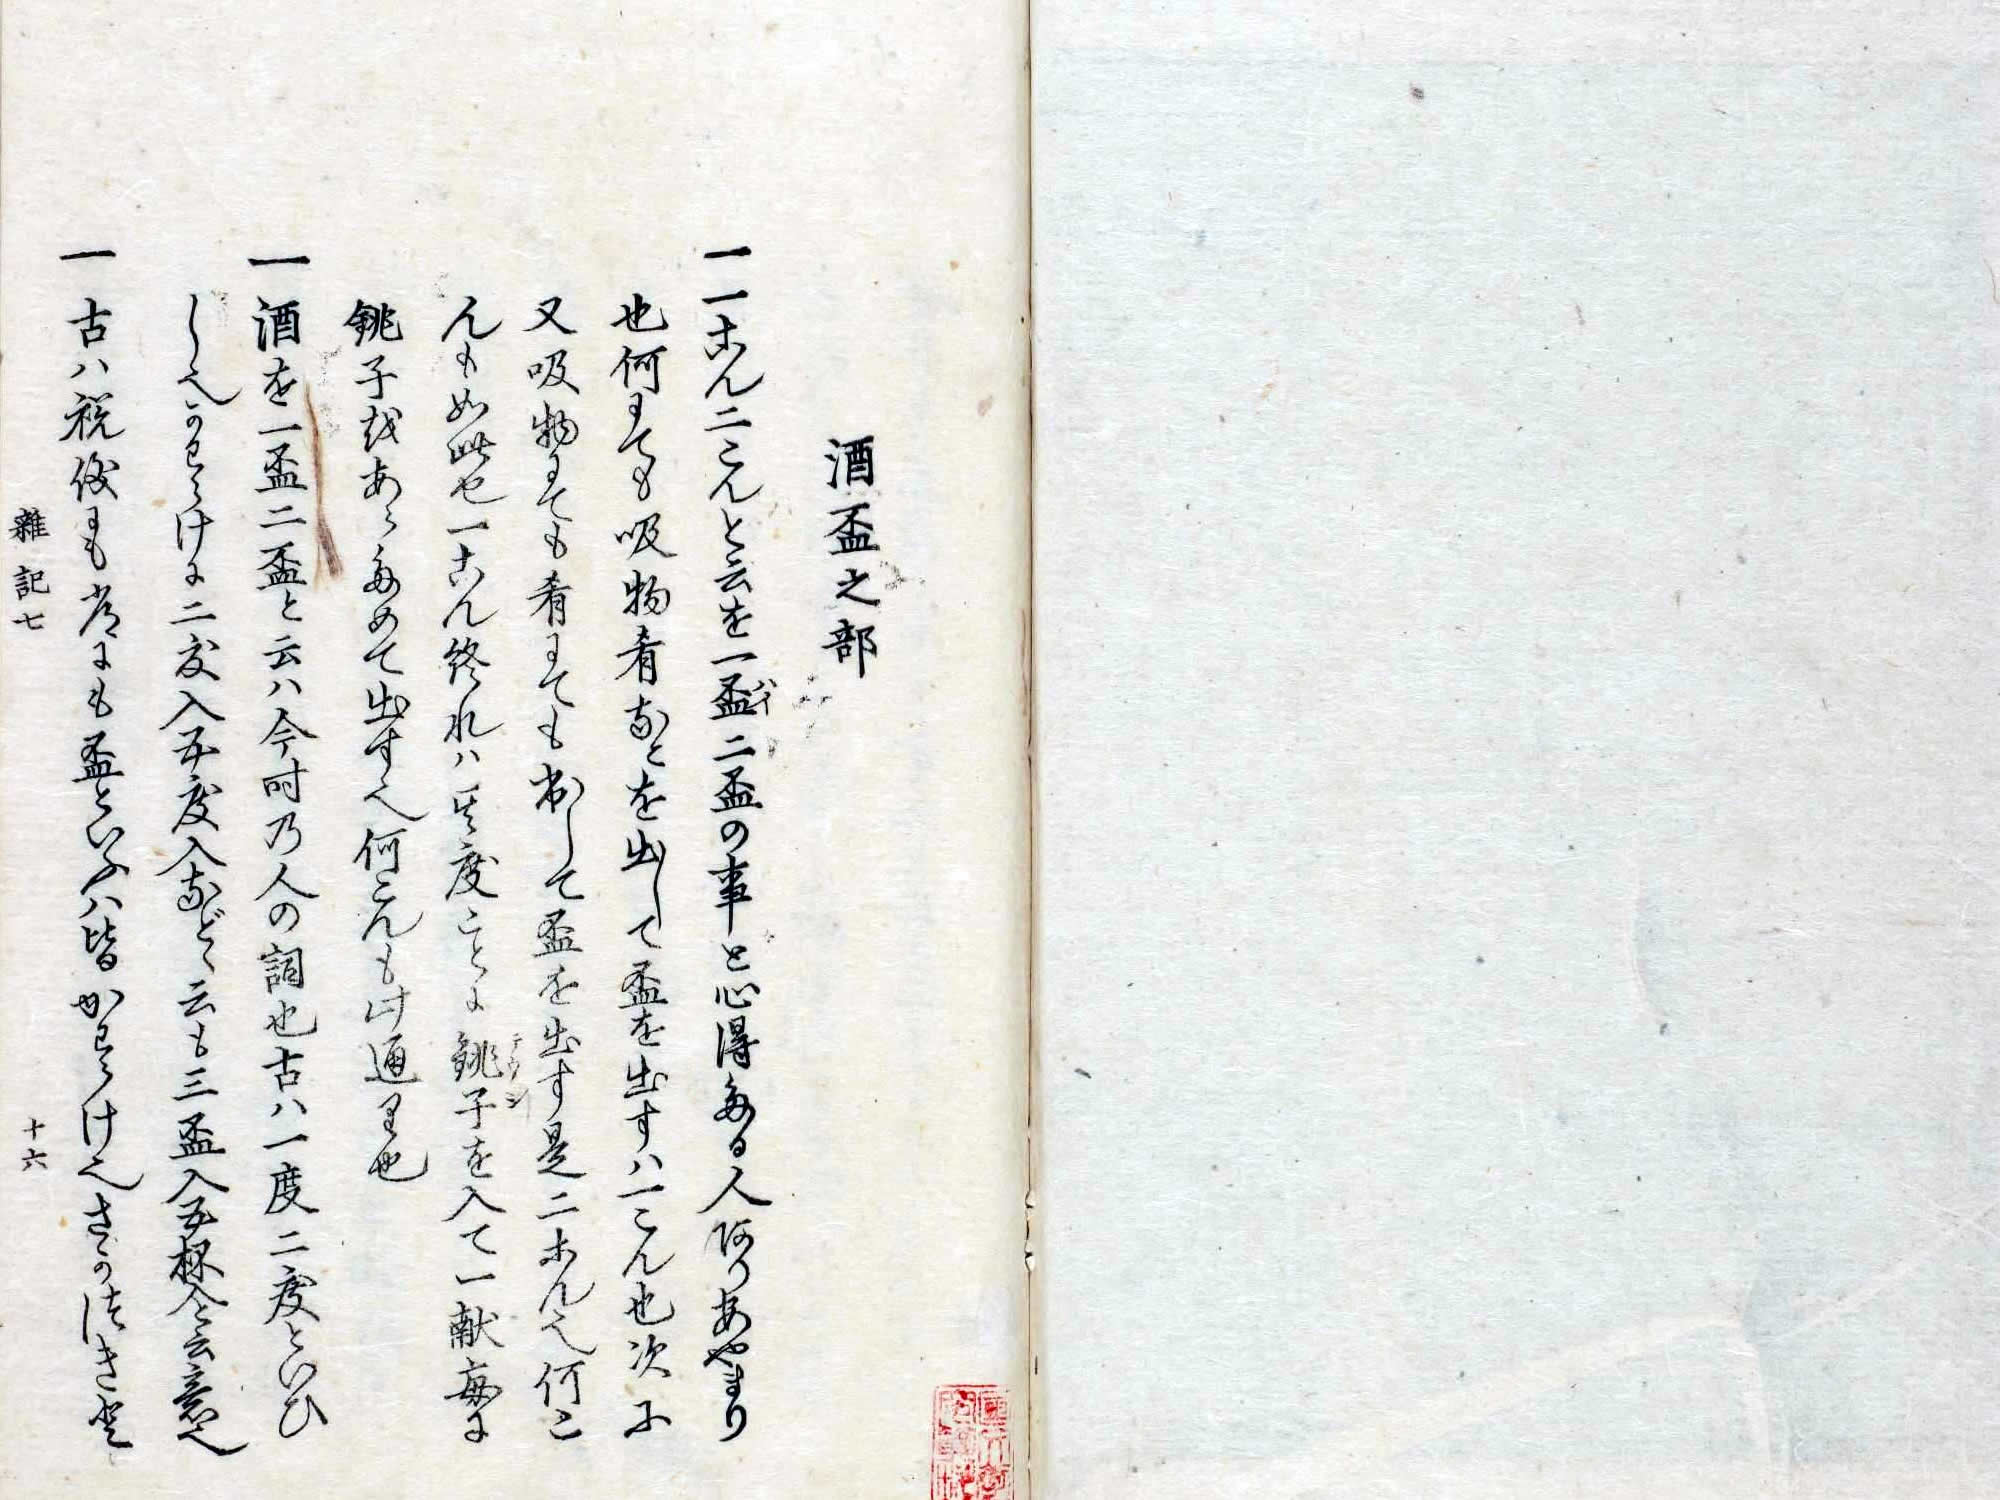 酒盃之部
一一こん二こんと云を一盃二盃の事と心得たる人ありあやまり
ハイ
也何にても吸物肴などを出して盃を出すハ一こん也次に
又吸物にても肴にても出して盃を出す是二こん也何こ
んも如此也一こん終れハ其度ことに銚子を入て一献毎に
テウシ
銚子をあらためて出す也何こんも此通り也
一酒を一盃二盃と云ハ今時乃人の詞也古ハ一度二度といひ
し也かわらけに二度入五度入など云も三盃入五杯入と云意也
一古ハ祝儀にも常にも盃といふハ皆かわらけ也さかつきと
雑記七
十六